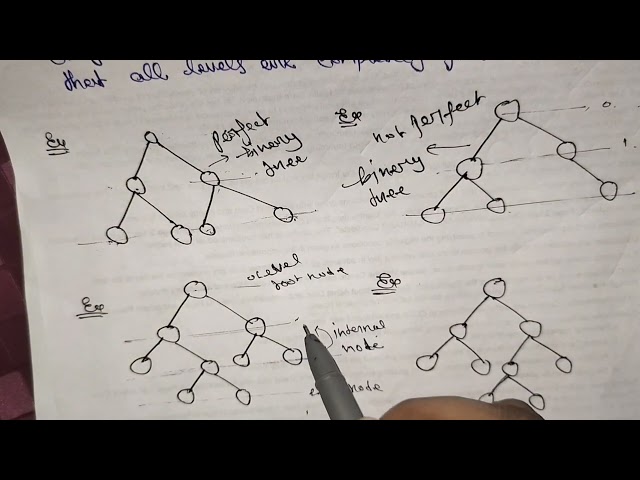 that all levels are completely
Ex
perfect
binary
tree
Ex
not perfect
binary
tree
0.
1.
Ex
0 level
root node
internal
node
node
Ex